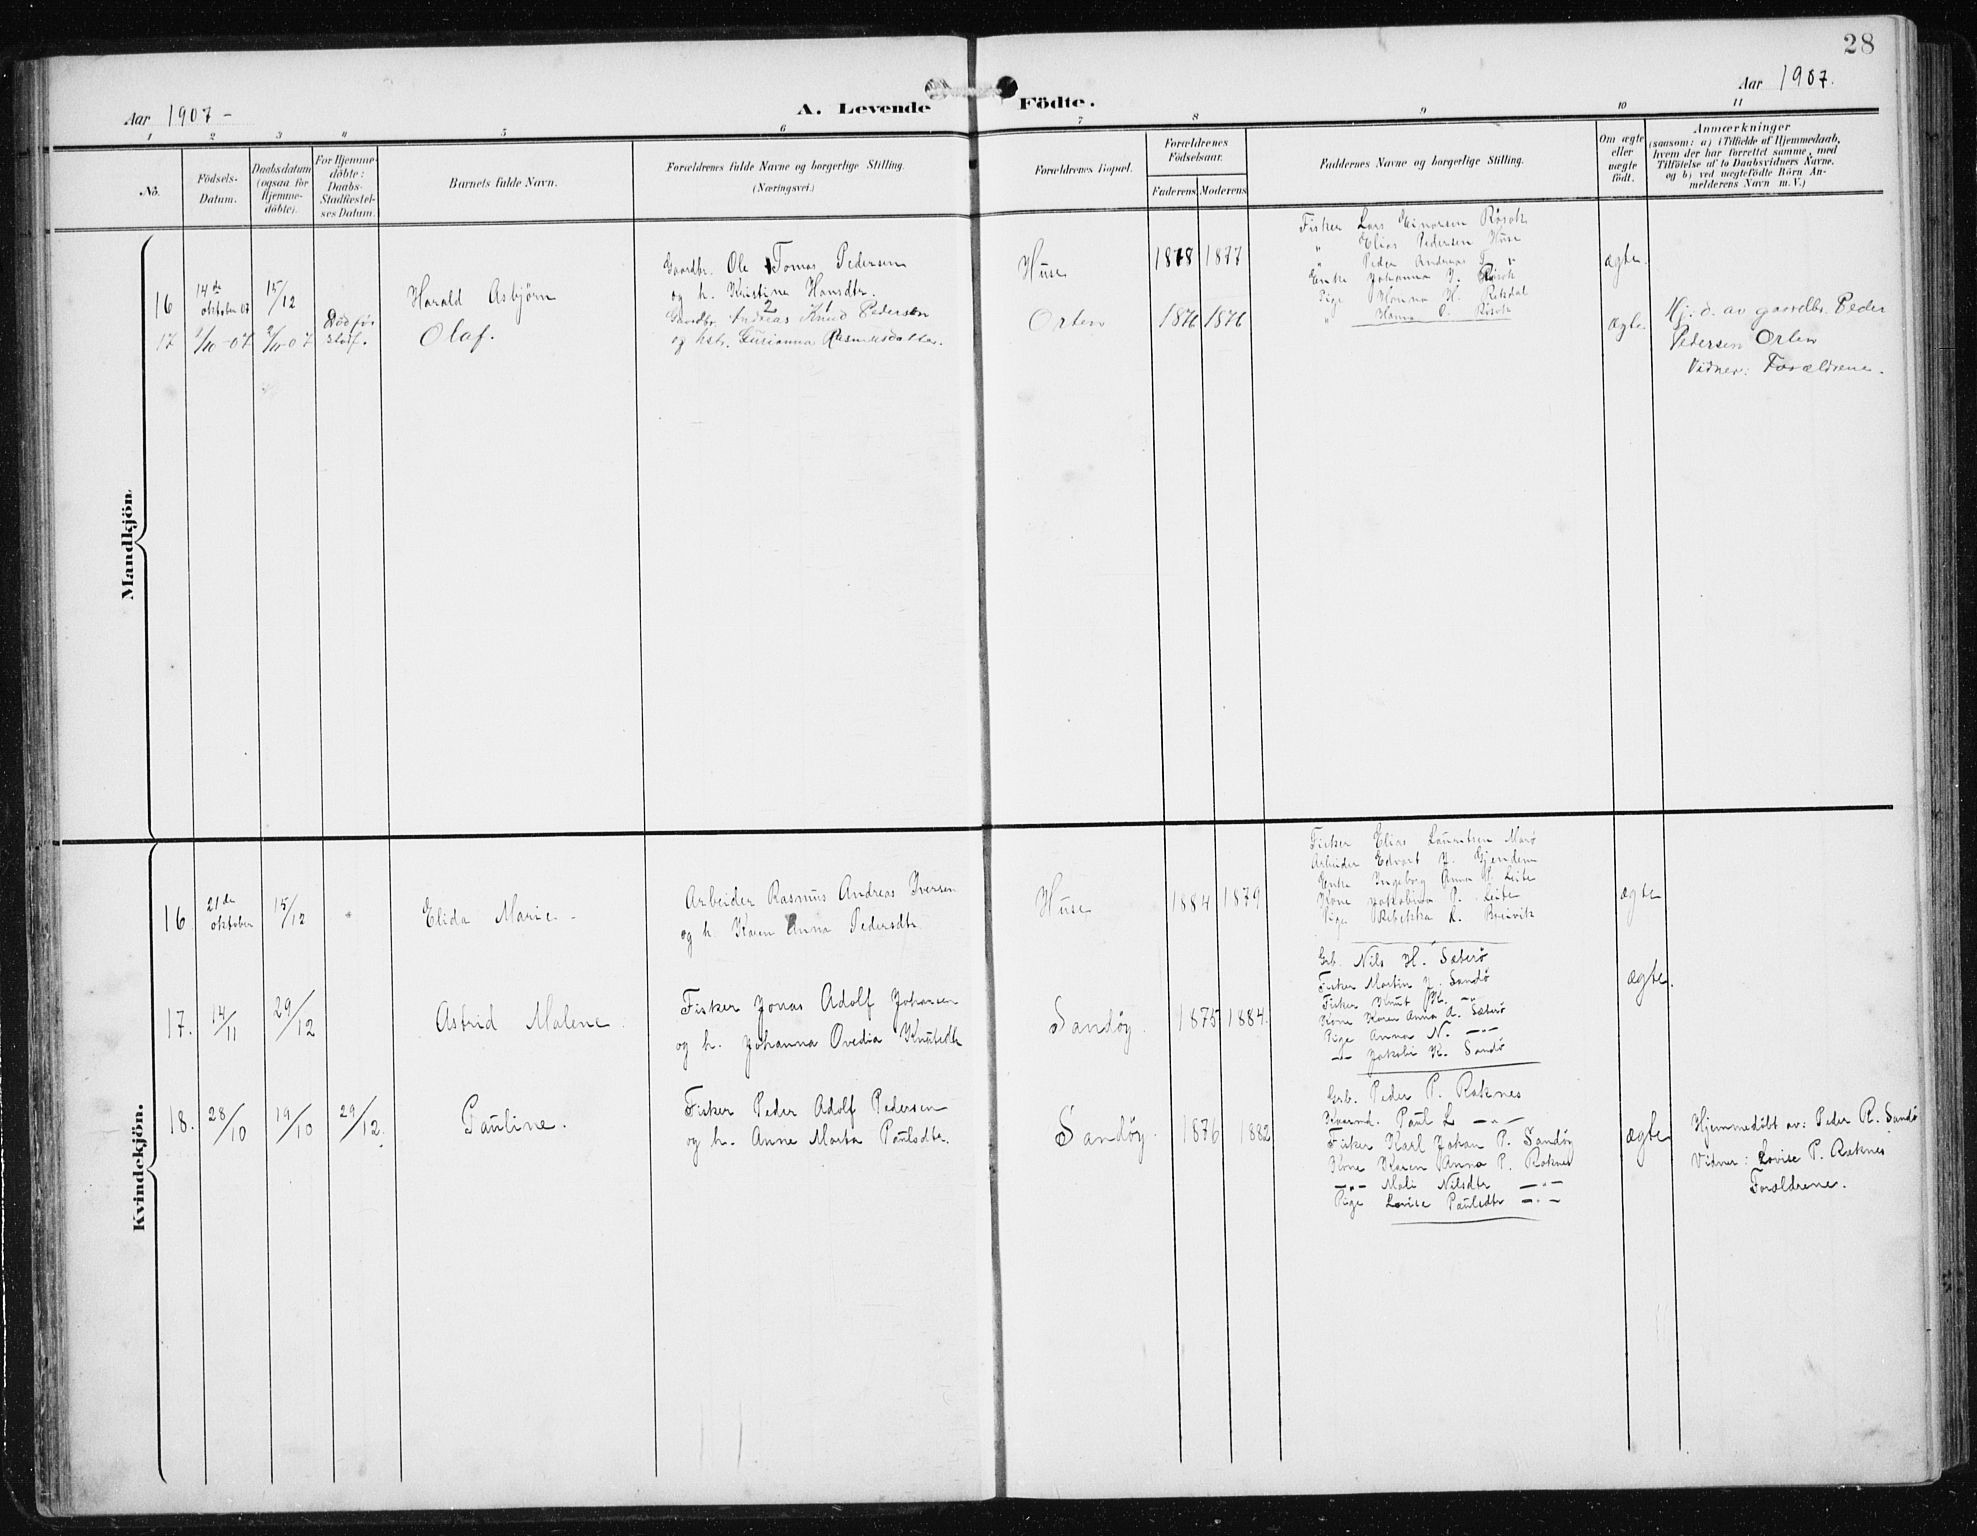 28
Aar 1907 -
A. Levende Födte.
Aar 1907.
1 2 3 4 5 6 7 8 9 10 11
No.
Födsels-
Datum.
Daabsdatum
(ogsaa for
Hjemme-
döbte).
For Hjemme-
döbte:
Daabs-
Stadfæstel-
ses Datum.
Barnets fulde Navn.
Forældrenes fulde Navne og borgerlige Stilling.
(Næringsvei.)
Forældrenes Bopæl.
Forældrenes
Födselsaar.
Faderens Moderens
Faddernes Navne og borgerlige Stilling.
Om ægte
eller
uægte
födt.
Anmærkninger
(saasom: a) i Tilfælde af Hjemmedaab,
hvem der har forrettet samme, med
Tilföielse af to Daabsvidners Navne.
og b) ved uægtefödte Börn An-
melderens Navn m. V.)
Mandkjön.
16
14de
oktober 07
15/12
Harald Asbjørn
Gaardbr. Ole Tomas Pedersen
og h. Kristine Hansdtr.
Huse
1878 1877
Fisker Lars Einarsen Røsok
" Elias Pedersen Huse
" Peder Andreas
Enke Johanna J. Røsok
Pige Hanna H. Reksdal
" Hanna O. Røsok
ægte
17
1/10-07
2/10-07
Død før
stadf.
Olaf.
Gaardbr. Andreas Knud Pedersen
2 1
og hstr. Gurianna Rasmusdatter.
Orten
1876 1876
ægte
Hj. d. av gaardbr. Peder
Pedersen Orten
Vidner: Forældrene.
Kvindekjön.
16
21de
oktober
15/12
Elida Marie -
Arbeider Rasmus Andreas Iversen
og h. Karen Anna Pedersdtr
Huse
1884 1879
Fisker Elias Lauritsen Marø
Arbeider Edvart J. Gjendem
Enke Ingeborg Anna Leite
Kone Jakobina P. Leite
Pige Rebekka L. Breivik
ægte
17.
14/11
29/12
Astrid Malene.
Fisker Jonas Adolf Johansen
og h. Johanna Ovedia Knutsdtr
Sandøy.
1875 1884.
Grb. Nils H. Sæterø
Fisker Martin J. Sandø
Fisker Knut M. -"-
Kone Karen Anna A. Sæterø
Pige Anna N. -"-
-"- Jakobi K. Sandø
ægte.
18.
28/10
19/10
29/12.
Pauline.
Fisker Peder Adolf Pedersen
og h. Anne Marta Paulsdtr.
Sandøy.
1876 1882
Grb. Peder P. Raknes
Kaarmd. Paul L -"-
Fisker Karl Johan P. Sandøy
Kone Karen Anna P. Raknes
-"- Mali Nilsdtr -"-
Pige Lovise Paulsdtr -"-
ægte
Hjemmedøbt av: Peder R. Sandø
Vidner: Lovise P. Raknes
Forældrene.